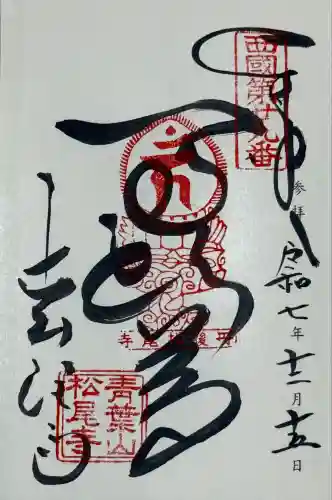 奉
西國第廿九番
参拝
令和七年 月十五日
馬頭尊
丹後松尾寺
青葉山
松尾寺